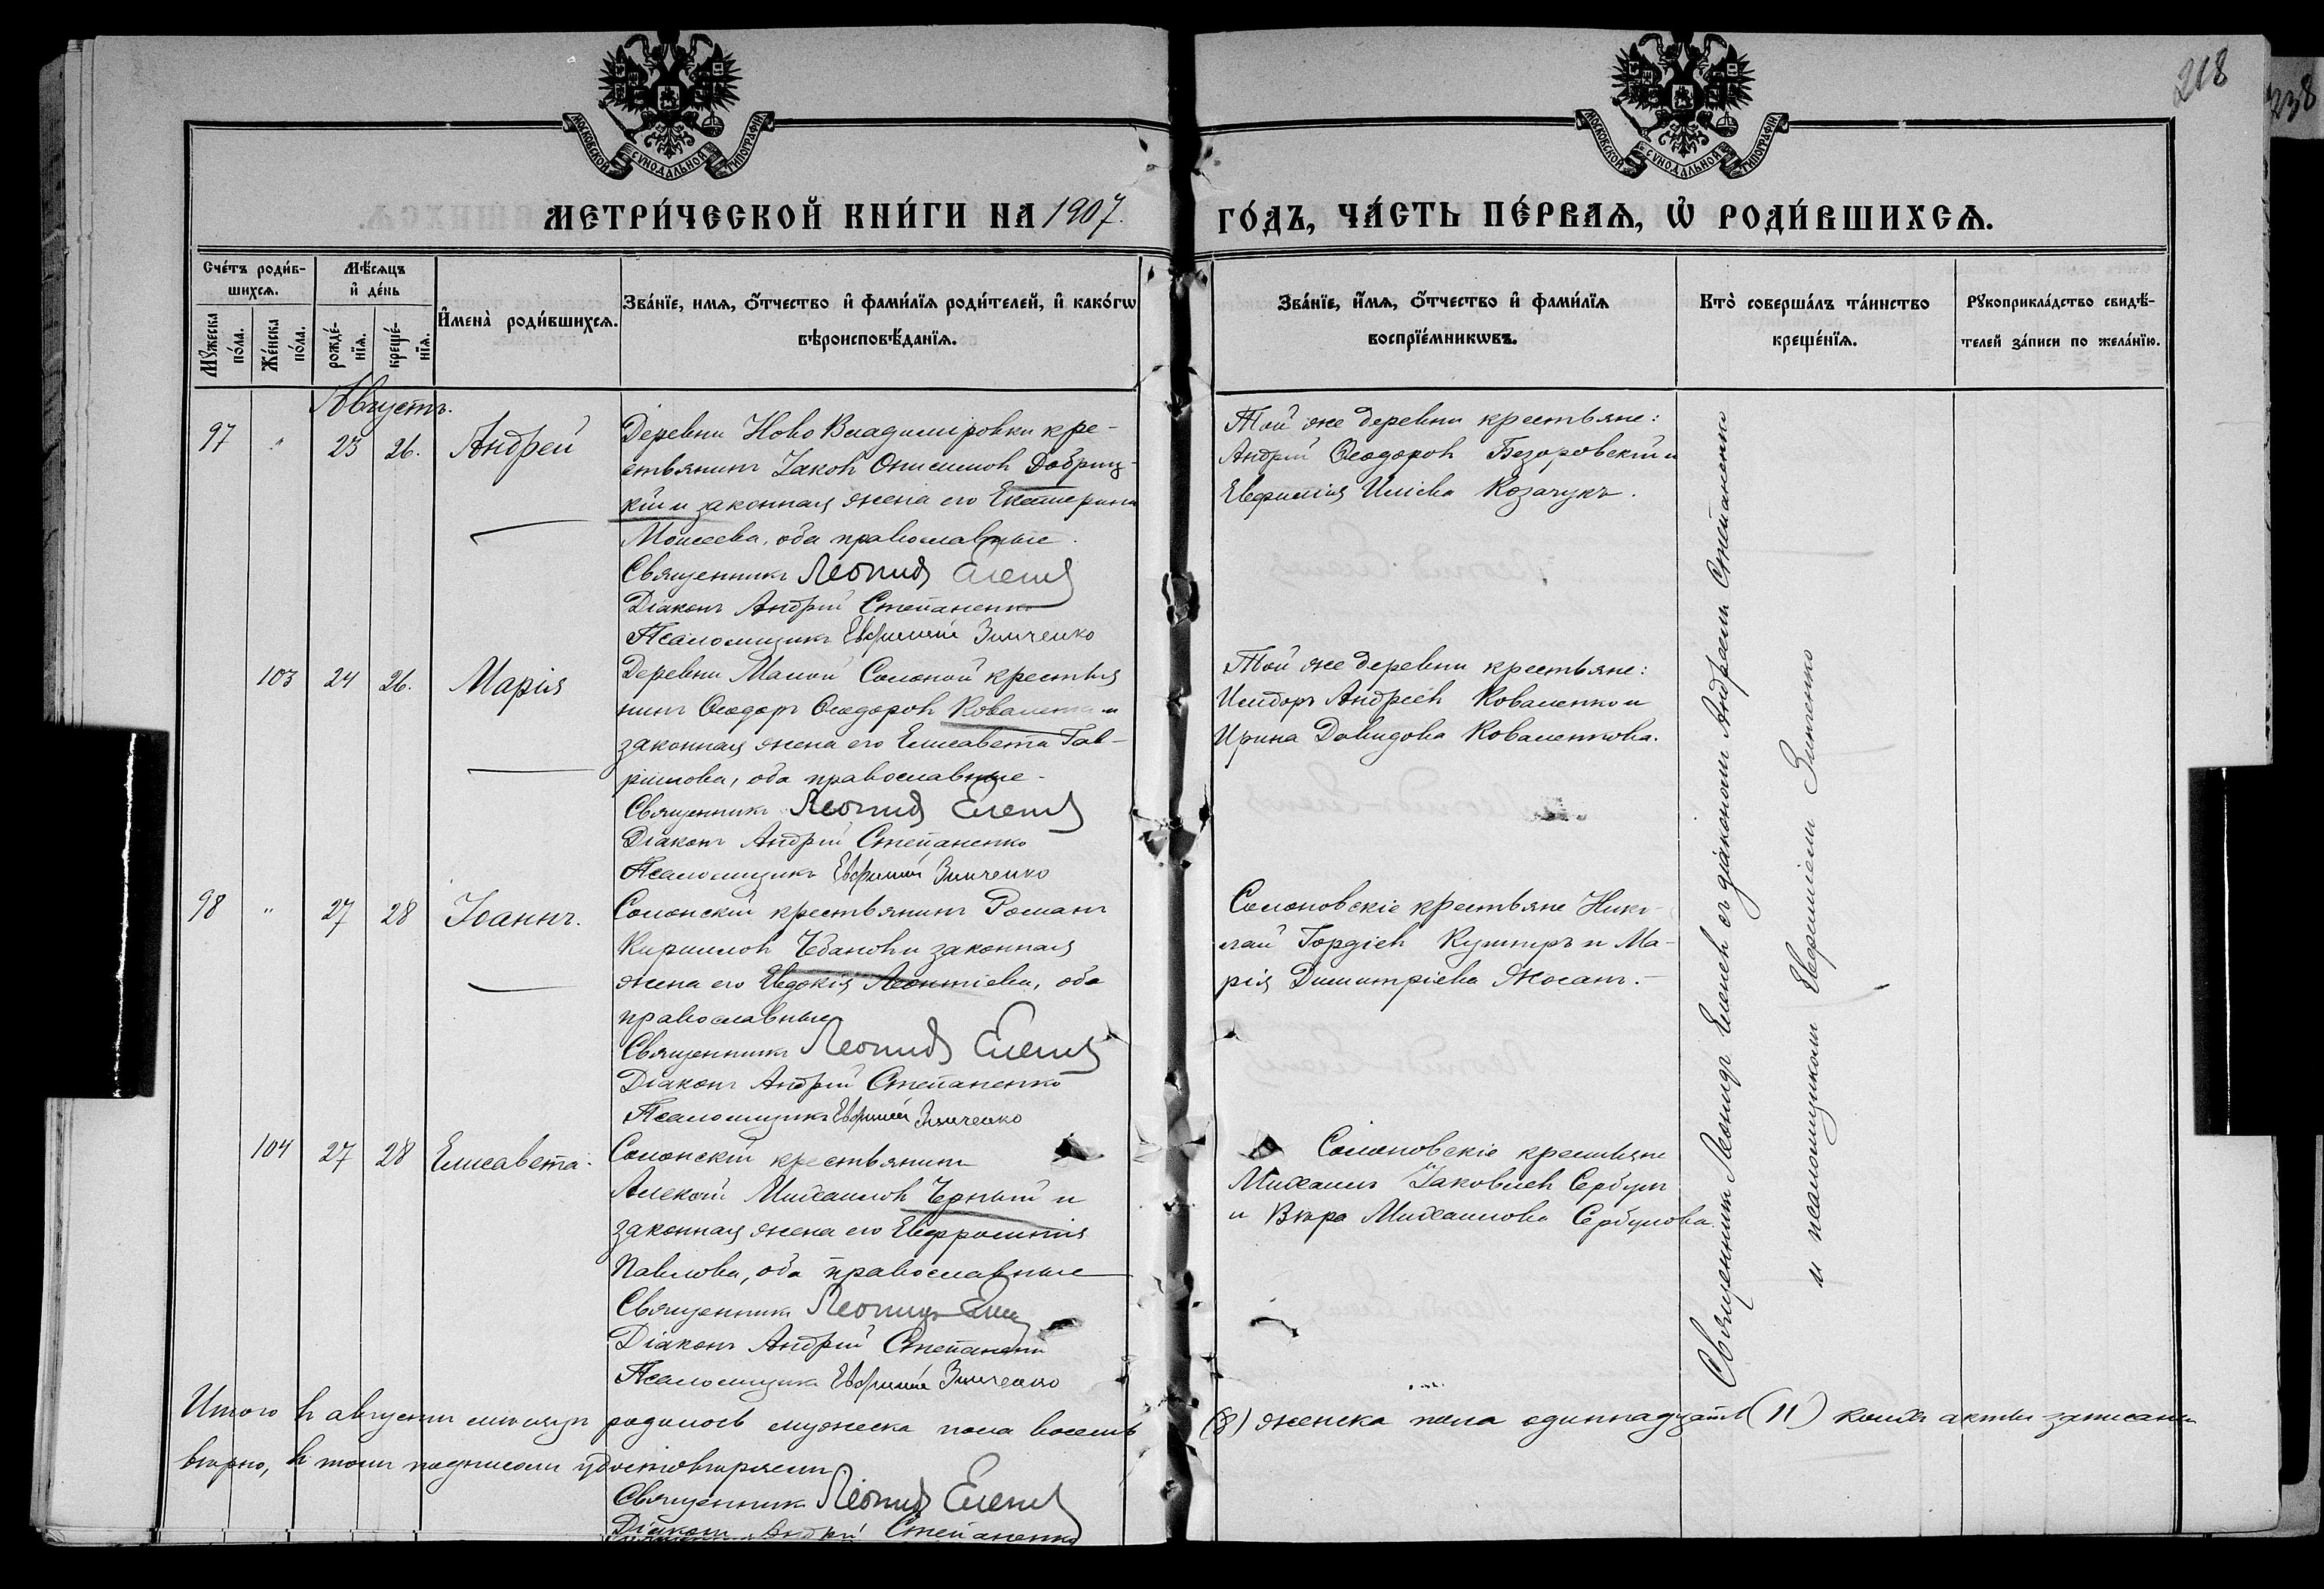 218
238
МОСКОВСКОЙ СѴНОДАЛЬНОЙ ТИПОГРАФІИ
МОСКОВСКОЙ СѴНОДАЛЬНОЙ ТИПОГРАФІИ
МЕТРИ́ЧЕСКОЙ КНИ́ГИ НА 1907. ГО́ДЪ, ЧА́СТЬ ПЕ́РВАѦ, Ѡ҆ РОДИ́ВШИХСѦ.
Сче́тъ роди́в-
шихсѧ.
Мꙋ́жеска по́ла.
Же́нска по́ла.
Мѣ́сѧцъ
и҆ де́нь
рожде́-
нїѧ.
креще́-
нїѧ.
И҆мена̀ роди́вшихсѧ.
Зва́нїе, имѧ, ѻ҆́тчество и҆ фами́лїѧ роди́телей, и҆ како́гѡ
вѣроисповѣ́данїѧ.
Зва́нїе, и҆́мѧ, ѻ҆́тчество и҆ фами́лїѧ
воспрїе́мникѡвъ.
Кто̀ соверша́лъ та́инство
креще́нїѧ.
Рꙋкоприкла́дство свидѣ́-
телей за́писи по жела́нїю.
Августъ.
97 " 23 26. Андрей
Деревни Ново Владимировки кре-
стьянинъ Іаковъ Онисимовъ Добриц-
кій и законная жена его Екатерина
Моисеева, оба православные.
Священникъ Леонидъ Еленевъ
Діаконъ Андрей Степаненко
Псаломщикъ Евфимій Зинченко
Той же деревни крестьяне:
Андрей Ѳеодоровъ и
Евфимія Иліева Козачукъ.
103 24 26. Марія
Деревни Малой Солоной крестья
нинъ Ѳеодоръ Ѳеодоровъ Коваленко и
законная жена его Елисавета Гав-
ріилова, оба православные.
Священникъ Леонидъ Еленевъ
Діаконъ Андрей Степаненко
Псаломщикъ Евфимій Зинченко
Той же деревни крестьяне:
Исидоръ Андреевъ Коваленко и
Ирина Давидова Коваленкова.
98 " 27 28 Іоаннъ.
Солонскій крестьянинъ Романъ
Кирилловъ Чбановъ и законная
жена его Евдокія Леонтіева, оба
православные
Священникъ Леонидъ Еленевъ
Діаконъ Андрей Степаненко
Псаломщикъ Евфимій Зинченко
Солоновскіе крестьяне Нико-
лай Гордіевъ Кушниръ и Ма-
рія Димитріева Носанъ.
104 27 28 Елисавета.
Солонскій крестьянинъ
Алексій Михаиловъ Черный и
законная жена его Евфросинія
Павлова, оба православные
Священникъ Леонидъ Еленевъ
Діаконъ Андрей Степаненко
Псаломщикъ Евфимій Зинченко
Солоновскіе крестьяне
Михаилъ Іаковлевъ Сербулъ
и Вѣра Михаилова Сербулова.
Священникъ Леонидъ Еленевъ съ діакономъ Андреемъ Степаненко
и псаломщикомъ Евфиміемъ Зинченко
Итого въ августѣ мѣсяцѣ родилось мужеска пола восемь (8) женска пола одиннадцать (11) акты записаны
вѣрно, въ томъ подписомъ удостовѣряемъ
Священникъ Леонидъ Еленевъ
Діаконъ Андрей Степаненко